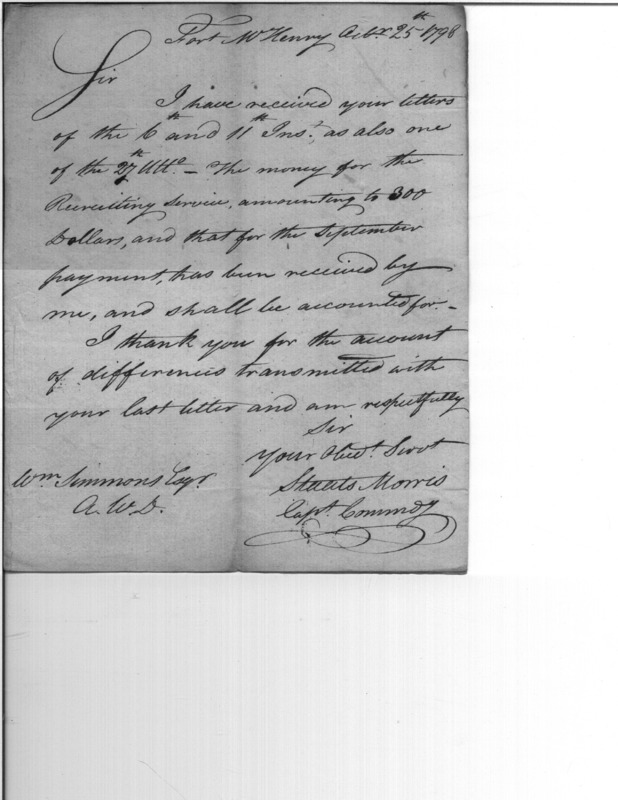 Fort McHenry Octbr. 25th 1798
Sir
I have received your letters
of the 6th and 11th Inst. as also one
of the 27th Ulto. – The money for the
Recruiting Service, amounting to 300
Dollars, and that for the September
payment, has been received by
me, and shall be accounted for. –
I thank you for the account
of differences transmitted with
your last letter and am respectfully
Sir
your Obedt. Servt
Staats Morris
Capt. Commdg
Wm Simmons Esqr.
A. W. D.